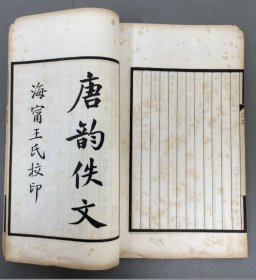 唐韵佚文
海甯王氏校印